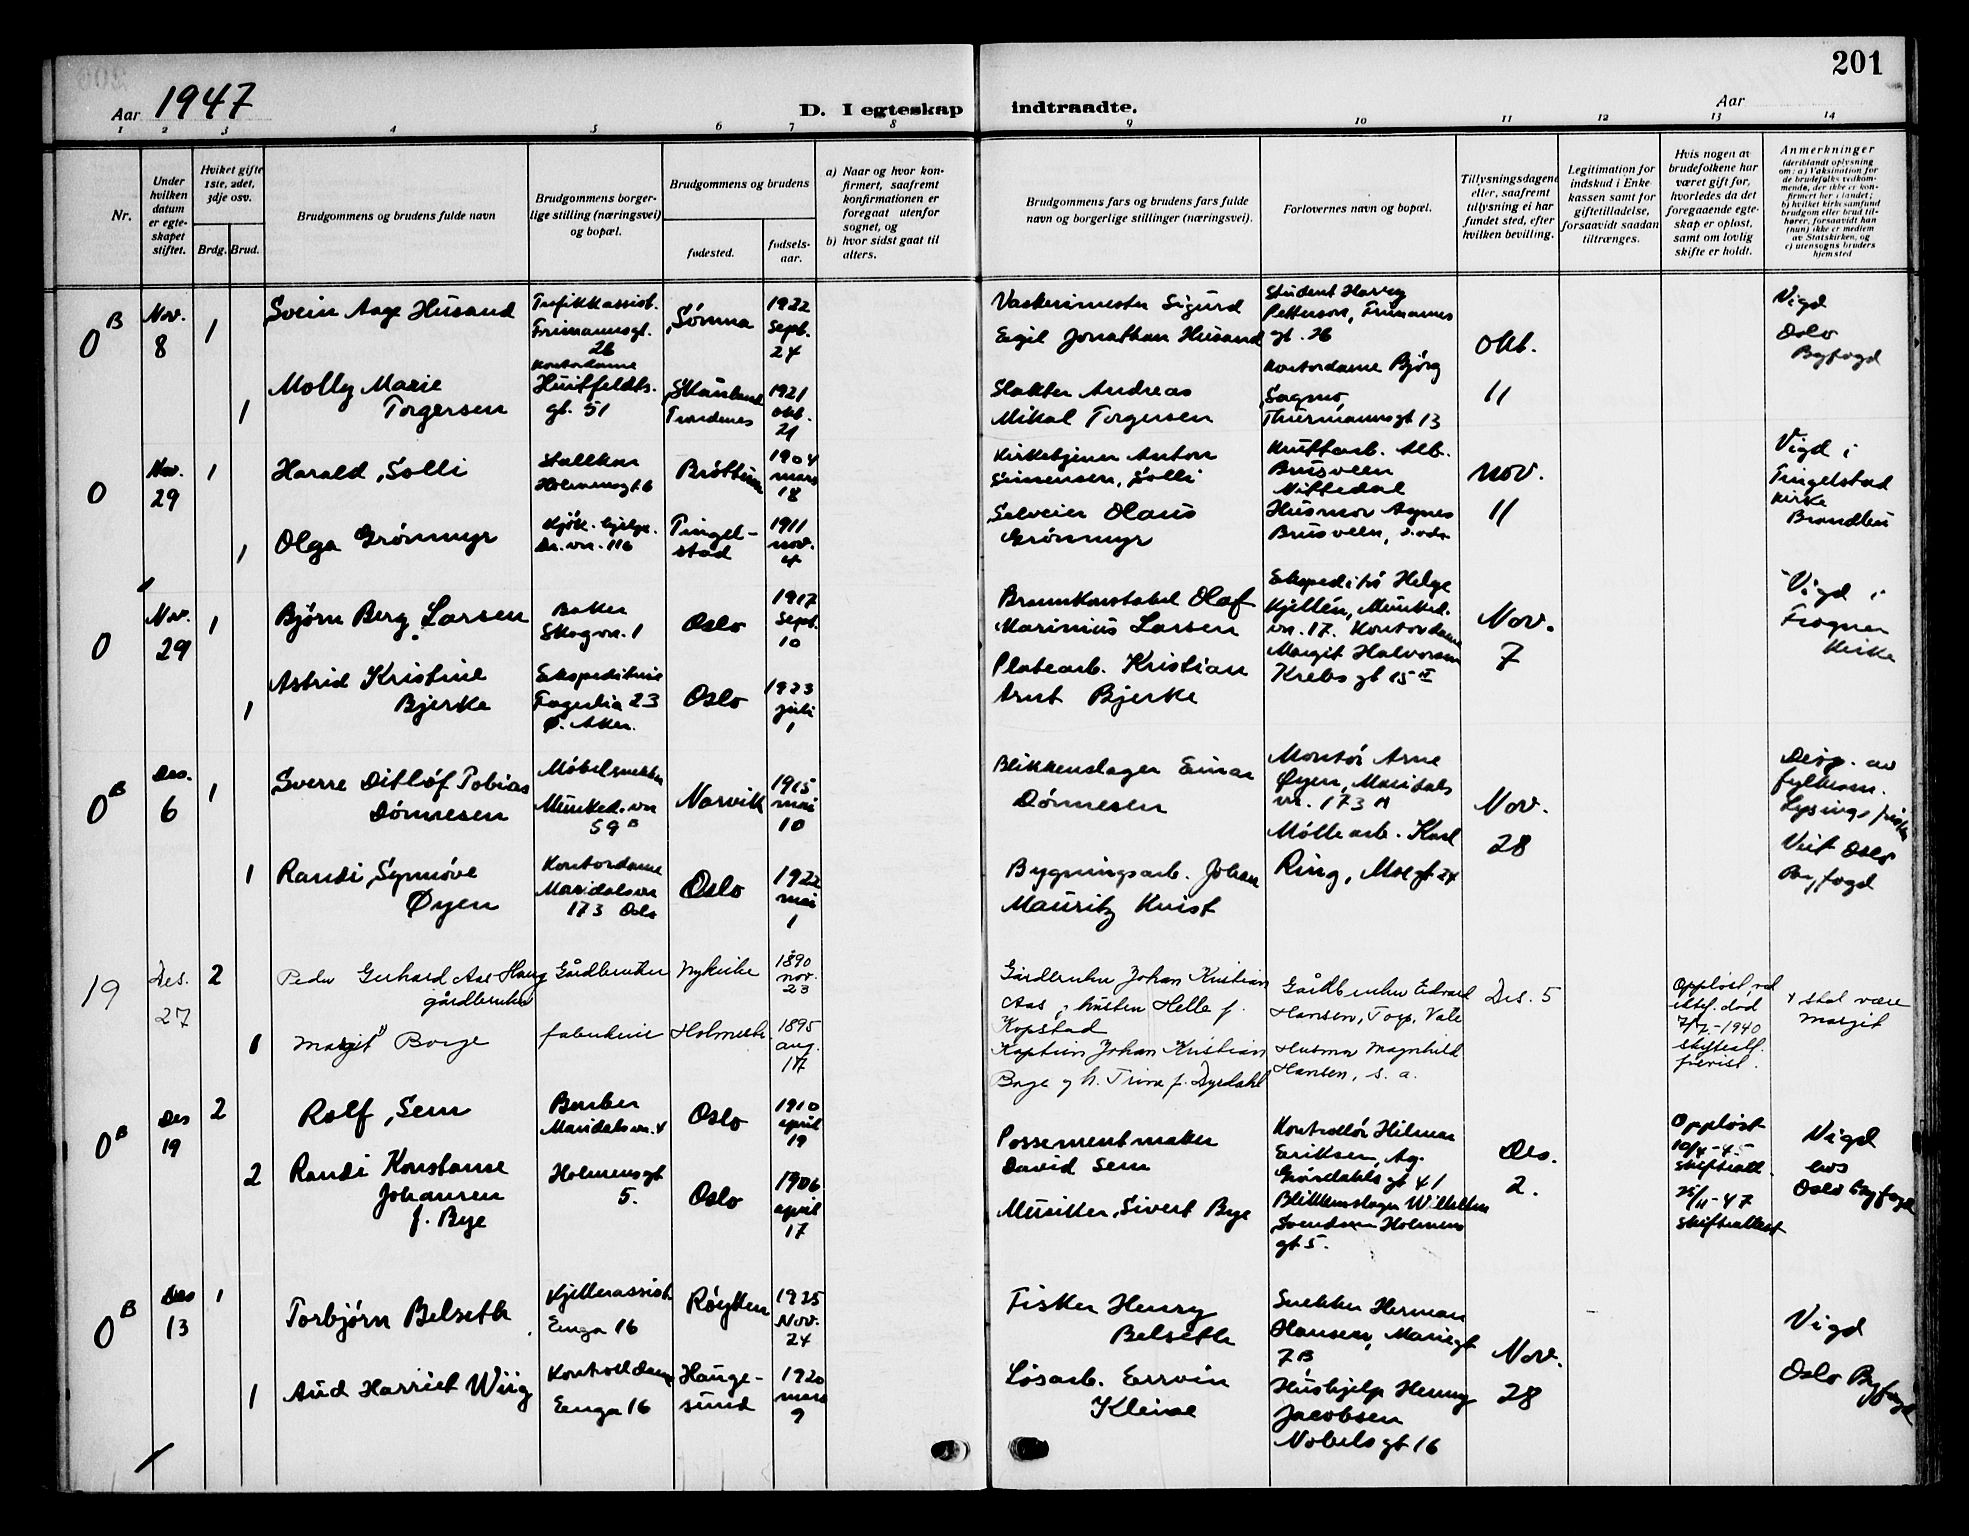 201
Aar 1947
D. I egteskap indtraadte.
Aar
1 2 3 4 5 6 7 8 9 10 11 12 13 14
Nr.
Under
hvilken
datum
er egte-
skapet
stiftet.
Hviket gifte
1ste, 2det,
3dje osv.
Brdg. Brud.
Brudgommens og brudens fulde navn
Brudgommens borger-
lige stilling (næringsvei)
og bopæl.
Brudgommens og brudens
fødested.
fødsels-
aar.
a) Naar og hvor kon-
firmert, saafremt
konfirmationen er
foregaat utenfor
sognet, og
b) hvor sidst gaat til
alters.
Brudgommens fars og brudens fars fulde
navn og borgerlige stillinger (næringsvei).
Forlovernes navn og bopæl.
Tillysningsdagene
eller, saafremt
tillysning ei har
fundet sted, efter
hvilken bevilling.
Legitimation for
indskud i Enke-
kassen samt for
giftetilladelse,
forsaavidt saadan
tiltrænges.
Hvis nogen av
brudefolkene har
været gift før,
hvorledes da det
foregaaende egte-
skap er opløst,
samt om lovlig
skifte er holdt.
Anmerkninger
(deriblandt oplysning
om: a) Vaksination for
de brudefolks vedkom-
mende, der ikke er kon-
firmert her i landet;
b) hvilket kirkesamfund
brudgom eller brud til-
hører, forsaavidt han
(hun) ikke er medlem
av Statskirken, og
c) utensogns bruders
hjemsted
0 B
Nov.
8
1
Svein Aage Husand
Trafikkassist.
Frimannsgt.
26
Sømna
1922
Sept.
24
Vaskerimester Sigurd
Eigil Jonathan Husand
Student Harry
Petterson, Frimannsgt. 26
Okt.
11
Vigd
Oslo
Byfogd
1
Molly Marie
Torgersen
Kontordame
Huitfeldts.
gt. 51
Skånland
Trondenes
1921
okt.
21
Slakter Andreas
Mikal Torgersen
Kontordame Bjørg
Sagmo,
Thurmannsgt 13
0
Nov.
29
1
Harald Solli
Stallkar
Holmensgt. 6
Brøttum
1904
mars
18
Kirketjener Anton
Simensen Solli
Kruttarb. Alb.
Brusveen
Nittedal
Nov.
11
Vigd i
Tingelstad
kirke
Brandbu
1
Olga Grønmyr
Kjøk. hjelp.
Dr. vn. 116
Tingel-
stad
1911
nov.
4
Sølveier Olaus
Grønmyr
Husmor Agnes
Brusveen, s. sds.
0
Nov.
29
1
Bjørn Berg Larsen
Baker
Skogvn. 1
Oslo
1917
Sept.
10
Brannkonstabel Olaf
Marinius Larsen
Ekspeditør Helge
Kjellén, Munked.
vn. 17. Kontordame
Nov.
7
Vigd i
Frogner
kirke
1
Astrid Kristine
Bjerke
Ekspeditrise
Fagerlia 23
Ø. Aker.
Oslo
1923
juli
1
Platearb. Kristian
Arnt Bjerke
Margit Halvorsen
Krebs gt 15 IV
0 B
Des.
6
1
Sverre Ditløf Tobias
Dønnesen
Møbelsnekker
Munked. vn
59 B
Narvik
1915
mai
10
Blikkenslager Einar
Dønnesen
Montør Arne
Øyen, Maridals
vn. 173 A
Nov.
28
Disp. av
fylkesm.
Lysings fristen
Viet Oslo
Byfogd
1
Randi Synnøve
Øyen
Kontordame
Maridalsvn
173 Oslo
Oslo
1922
mai
1
Bygningsarb. Johan
Mauritz Kvist
Møllearb. Karl
Ring, Moegt 24
19
Des.
27
2
Peder Gerhard Aas Haug
gårdbruker
Gårdbruker
Nykirke
1890
nov.
23
Gårdbruker Johan Kristian
Aas, hustru Helle f.
Kopstad
Gårdbruker Edvard
Hansen, Torp, Vale
Des. 5
Oppløst ved
ektef. død
7/7-1940
skifteatt.
forevist.
x skal være
Margit
1
Margit Borge
fabrikeier
Holmestr.
1895
aug.
17
Kaptein Johan Kristian
Borge og h. Trine f. Dyrdahl
Husmor Magnhild
Hansen, s. a.
0 B
Des
19
2
Rolf Sem
Barber
Maridalsvn. 4
Oslo
1910
april
19
Possementmaker
David Sem
Kontrollør Hilmar
Eriksen, Ag.
Grøndahls gt 41
Des.
2.
Oppløst
10/4-45
skifteatt.
Vigd
hos
Oslo byfogd
2
Randi Konstanse
Johansen
f. Bye
Holmensgt
5.
Oslo
1906
april
17
Musiker Sivert Bye
Blikkenslager Wilhelm
Svendsen Holmens
gt 5.
25/11-47
skifteattest
0 B
Des
13
1
Torbjørn Belseth
Kjellerassist.
Enga 16
Røyken
1925
Nov.
24
Fisker Henry
Belseth
Snekker Herman
Hansen, Mariegt
7 B
Nov.
28
Vigd
Oslo Byfogd
1
Aud Harriet Wiig
Kontrolldame
Enga 16
Hauge-
sund
1920
mars
9
Løsarb. Errvin
Kleive
Hushjelp Henny
Jacobsen
Nobels gt 16